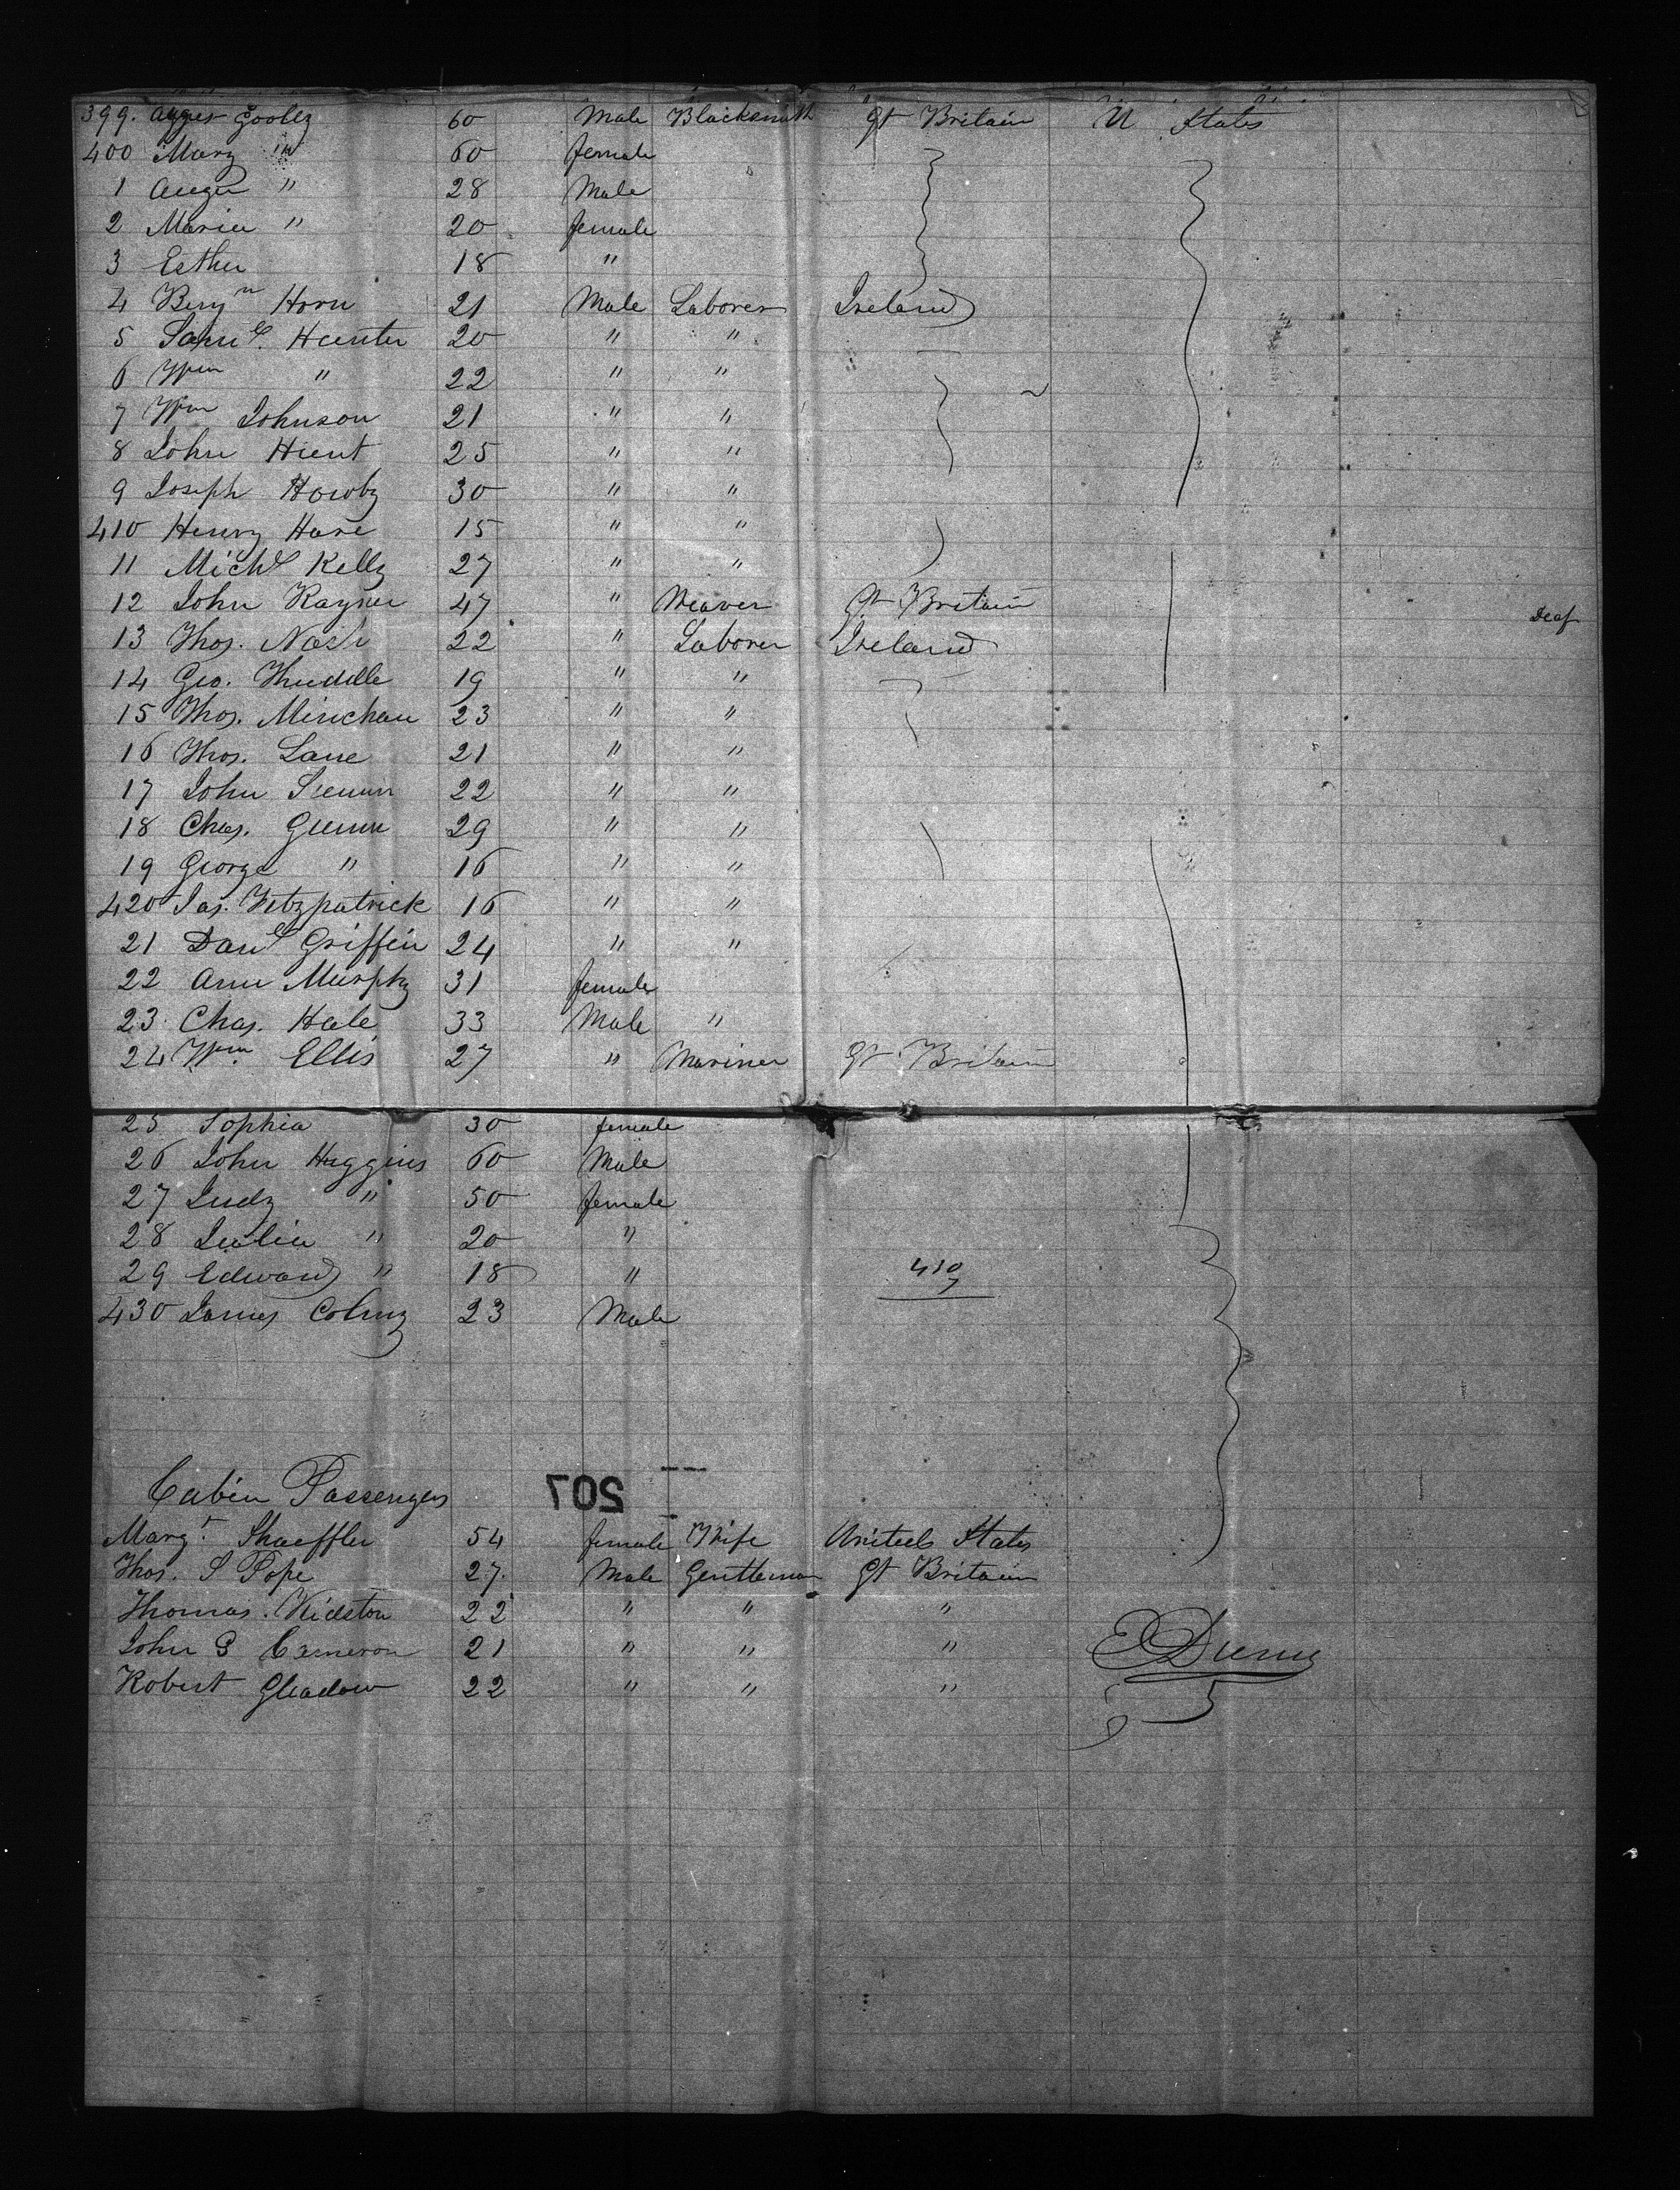 399. Gooley 60 Male Blacksmith Gt Britain U States
400 Mary " 60 female
1 " 28 Male
2 Maria " 20 female
3 Esther 18 "
4 Benjn Horn 21 Male Laborer Ireland
5 Saml. Hunter 20 " "
6 Wm " 22 " "
7 Wm Johnson 21 " "
8 John Hunt 25 " "
9 Joseph 30 " "
410 Henry Hare 15 " "
11 Michl Kelly 27 " "
12 John Rayner 47 " Weaver Gt Britain Deaf
13 Thos. Nash 22 " Laborer Ireland
14 Geo. 19 " "
15 Thos. Minchan 23 " "
16 Thos. Lane 21 " "
17 John 22 " "
18 Chas. Gunn 29 " "
19 George " 16 " "
420 Jas. Fitzpatrick 16 " "
21 Danl Griffin 24 " "
22 Ann Murphy 31 female
23 Chas. Hale 33 Male "
24 Wm Ellis 27 " Mariner Gt Britain
25 Sophia 30 female
26 John Huggins 60 Male
27 Judy " 50 female
28 Julia " 20 "
29 Edward " 18 " 430
7
430 James 23 Male
Cabin Passengers 207
Margt. Shaeffler 54 female Wife United States
Thos. S Pope 27 Male Gentleman Gt Britain
Thomas. Kidston 22 " " "
John G Cameron 21 " " "
Robert Gleadow 22 " " "